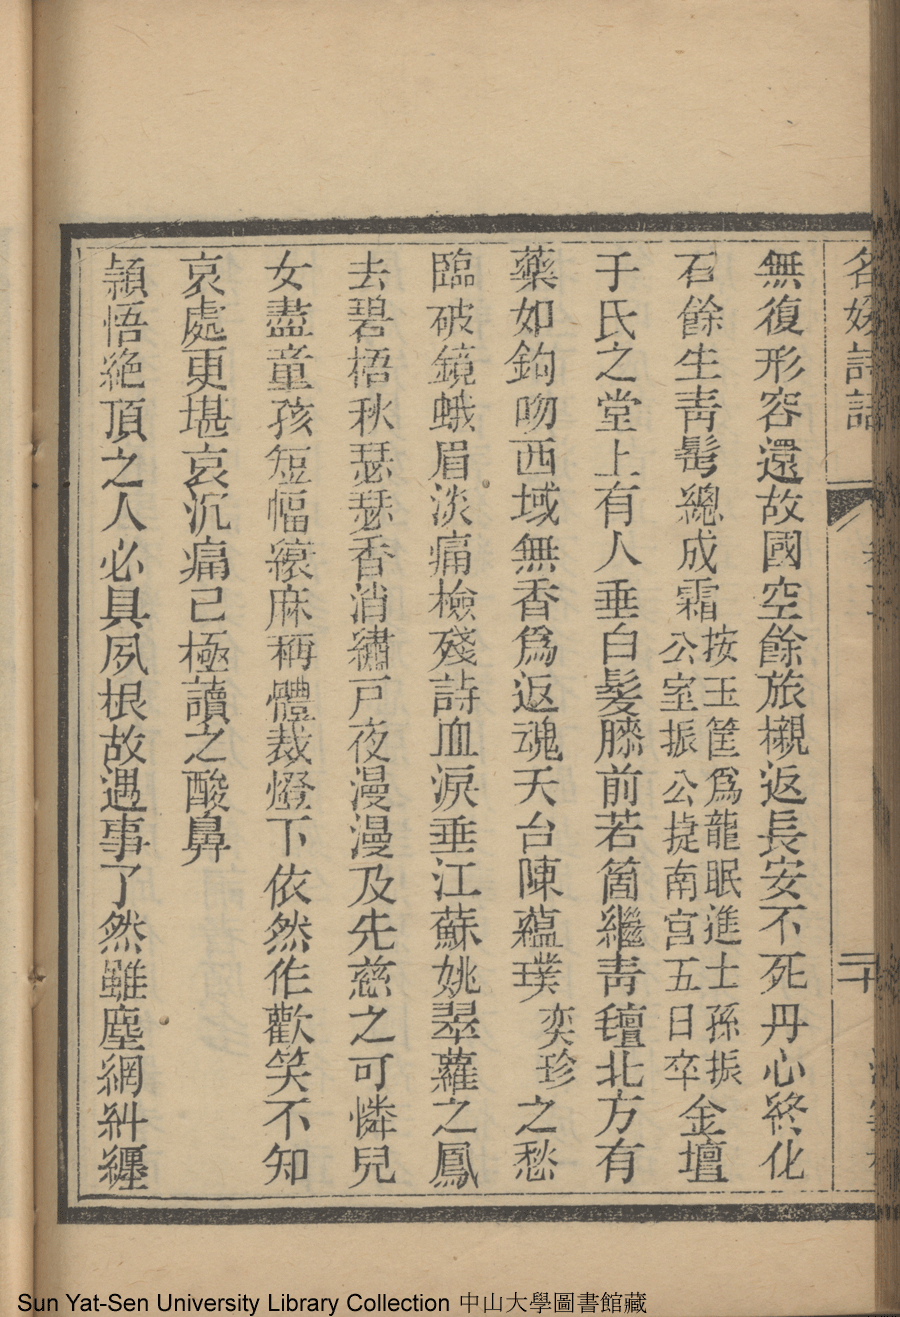 名媛詩話
三十
無復形容還故國空餘旅櫬返長安不死丹心終化
石餘生靑髩總成霜按玉筐爲龍眠進士孫振公室振公捷南宮五日卒金壇
于氏之堂上有人垂白髮膝前若箇繼靑氊北方有
藥如鉤吻西域無香爲返魂天台陳蘊璞奕珍之愁
臨破鏡蛾眉淡痛檢殘詩血淚垂江蘇姚翠蘿之鳳
去碧梧秋瑟瑟香消繡戸夜漫漫及先慈之可憐兒
女盡童孩短幅縗麻稱體裁燈下依然作歡笑不知
哀處更堪哀沉痛已極讀之酸鼻
頴悟絶頂之人必具夙根故遇事了然雖塵網糾纒
Sun Yat-Sen University Library Collection 中山大學圖書館藏